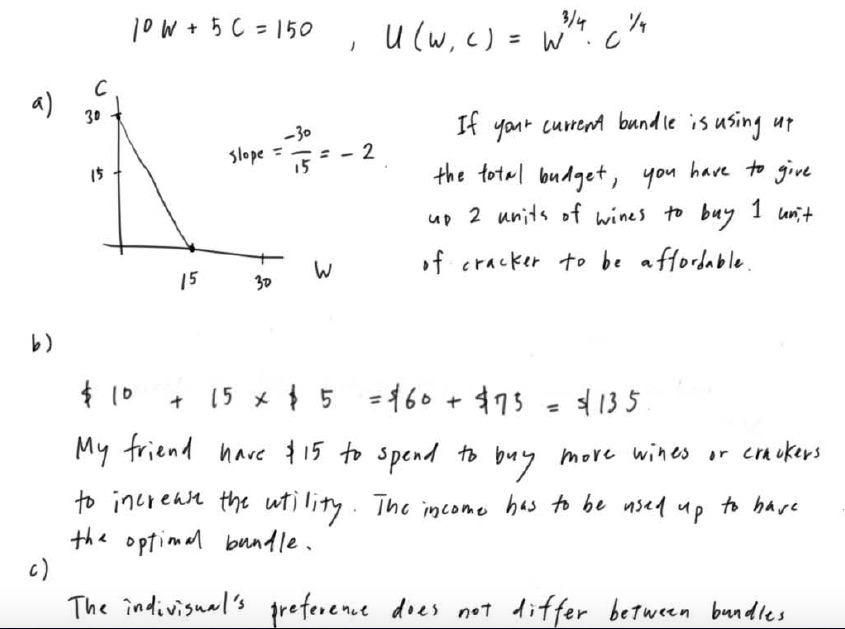 10 W + 5 C = 150 , U (W, C) = W^3/4 · C^1/4
a)
C
30
15
15
30
W
slope = -30/15 = - 2
If your current bundle is using up
the total budget, you have to give
up 2 units of wines to buy 1 unit
of cracker to be affordable.
b)
$ 10 + 15 × $ 5 = $60 + $75 = $135
My friend have $15 to spend to buy more wines or crackers
to increase the utility. The income has to be used up to have
the optimal bundle.
c)
The indivisual's preference does not differ between bundles